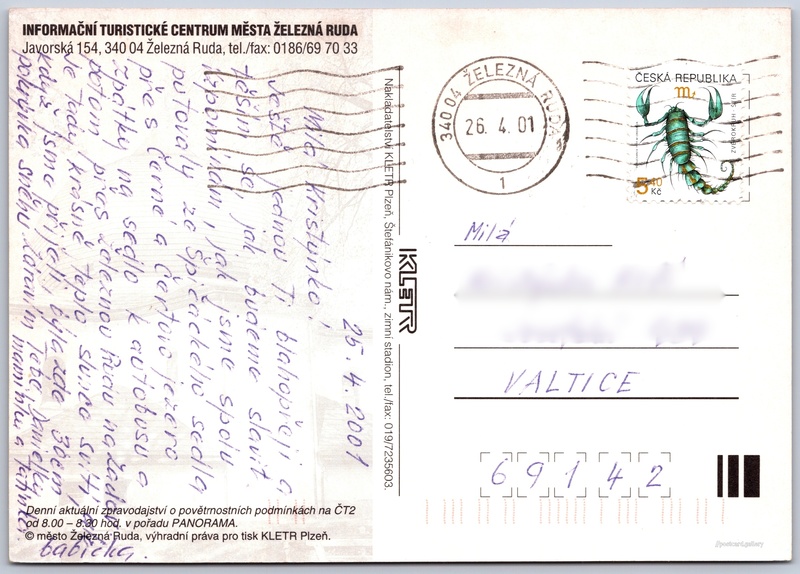 INFORMAČNÍ TURISTICKÉ CENTRUM MĚSTA ŽELEZNÁ RUDA
Javorská 154, 340 04 Železná Ruda, tel./fax: 0186/69 70 33
25. 4. 2001
Milá Kristýnko!
Ještě jednou Ti blahopřeji a
těším se, jak budeme slavit.
Vzpomínám, jak jsme spolu
putovaly ze Špičáckého sedla
přes Černé a Čertovo jezero
zpátky na sedlo k autobusu a
potom přes Železnou Rudu na
Je tady krásně teplo, slunce svítí,
když jsme přijeli, byla zde 30cm
pokrývka sněhu. Zdravím
maminku a tatínka
babička.
Denní aktuální zpravodajství o povětrnostních podmínkách na ČT2
od 8.00 – 8.30 hod. v pořadu PANORAMA.
© město Železná Ruda, výhradní práva pro tisk KLETR Plzeň.
Nakladatelství KLETR Plzeň, Štefánikovo nám., zimní stadion, tel./fax: 019/7235603.
KLETR
340 04 ŽELEZNÁ RUDA
26. 4. 01
1
ČESKÁ REPUBLIKA
ZVĚROKRUH - ŠTÍR
5,40
Kč
Milá
VALTICE
69142